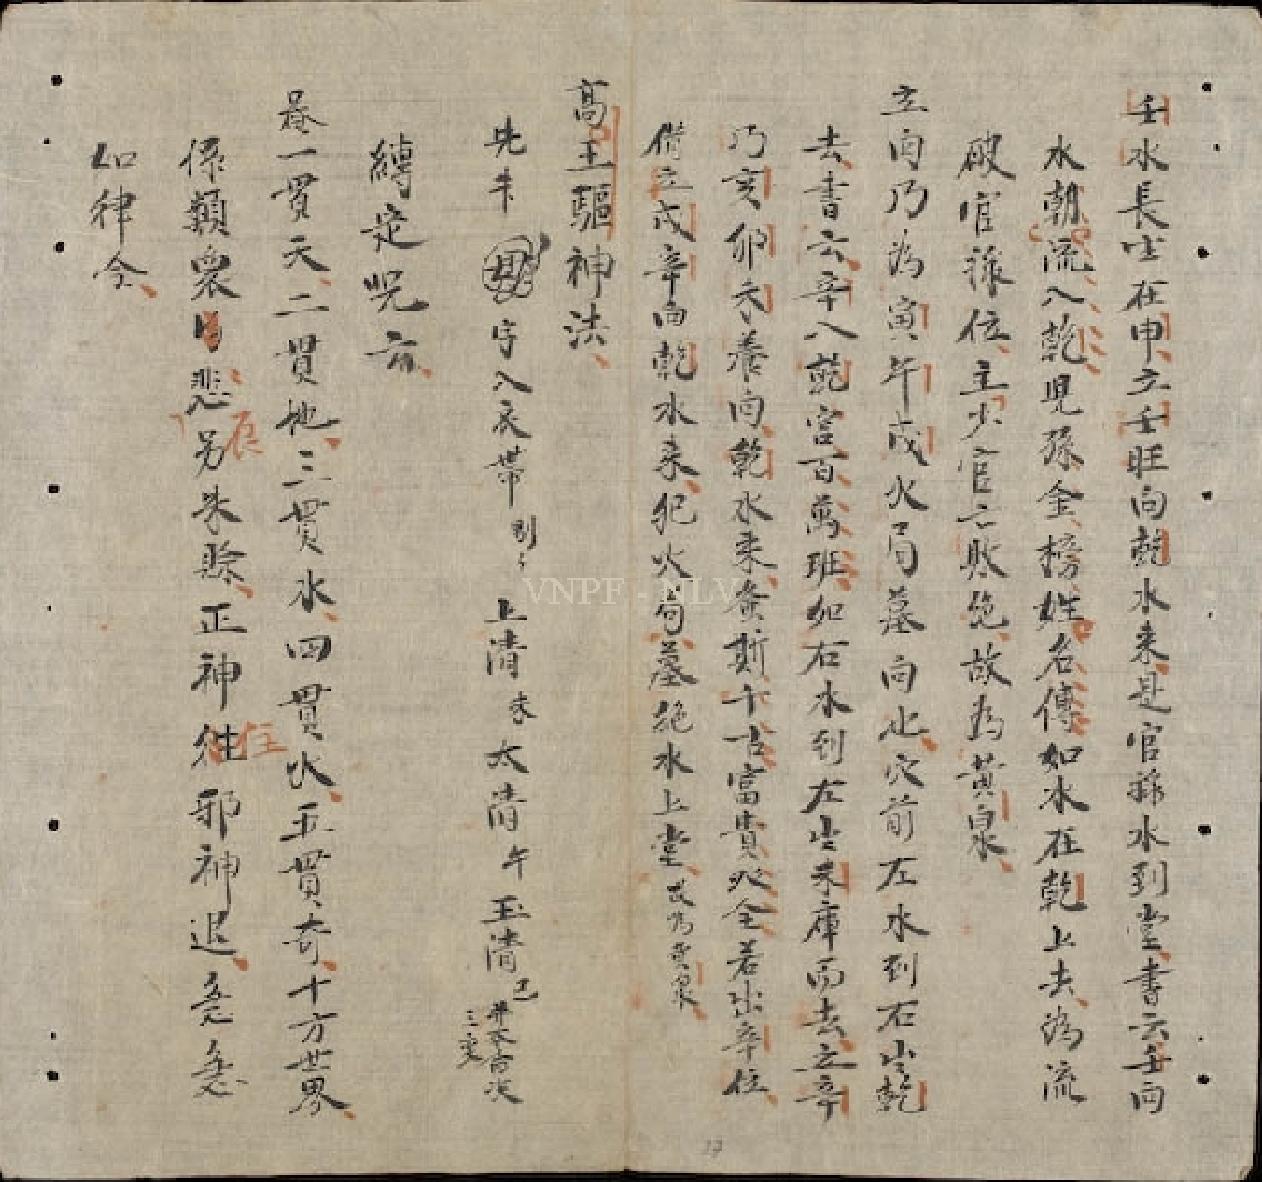 壬水長生在申立壬旺向乾水来是官祿水到堂書云壬向
水朝流入乾児孫金榜姓名傳如水在乾上去為流
破官祿位主少官亡敗絶故為黄泉
立向乃為寅午戌火局墓向也穴前左水到右出乾
去書云辛入乾宮百萬班如右水到左出未庫而去立辛
乃亥卯未養向乾水来螽斯千古富貴必全若出辛位
借立戌辛向乾水来犯火局墓絶水上堂故為黄泉
高王驅神法
先书 字入衣帶 上清 太清 午 玉清 已
三 次
縛定咒云
一貫天二貫地三貫水四貫火五貫奇十方世界
係類眾 悲 另朱賒正神往邪神退急急
辰
住
如律令
VNPF - NLV
17